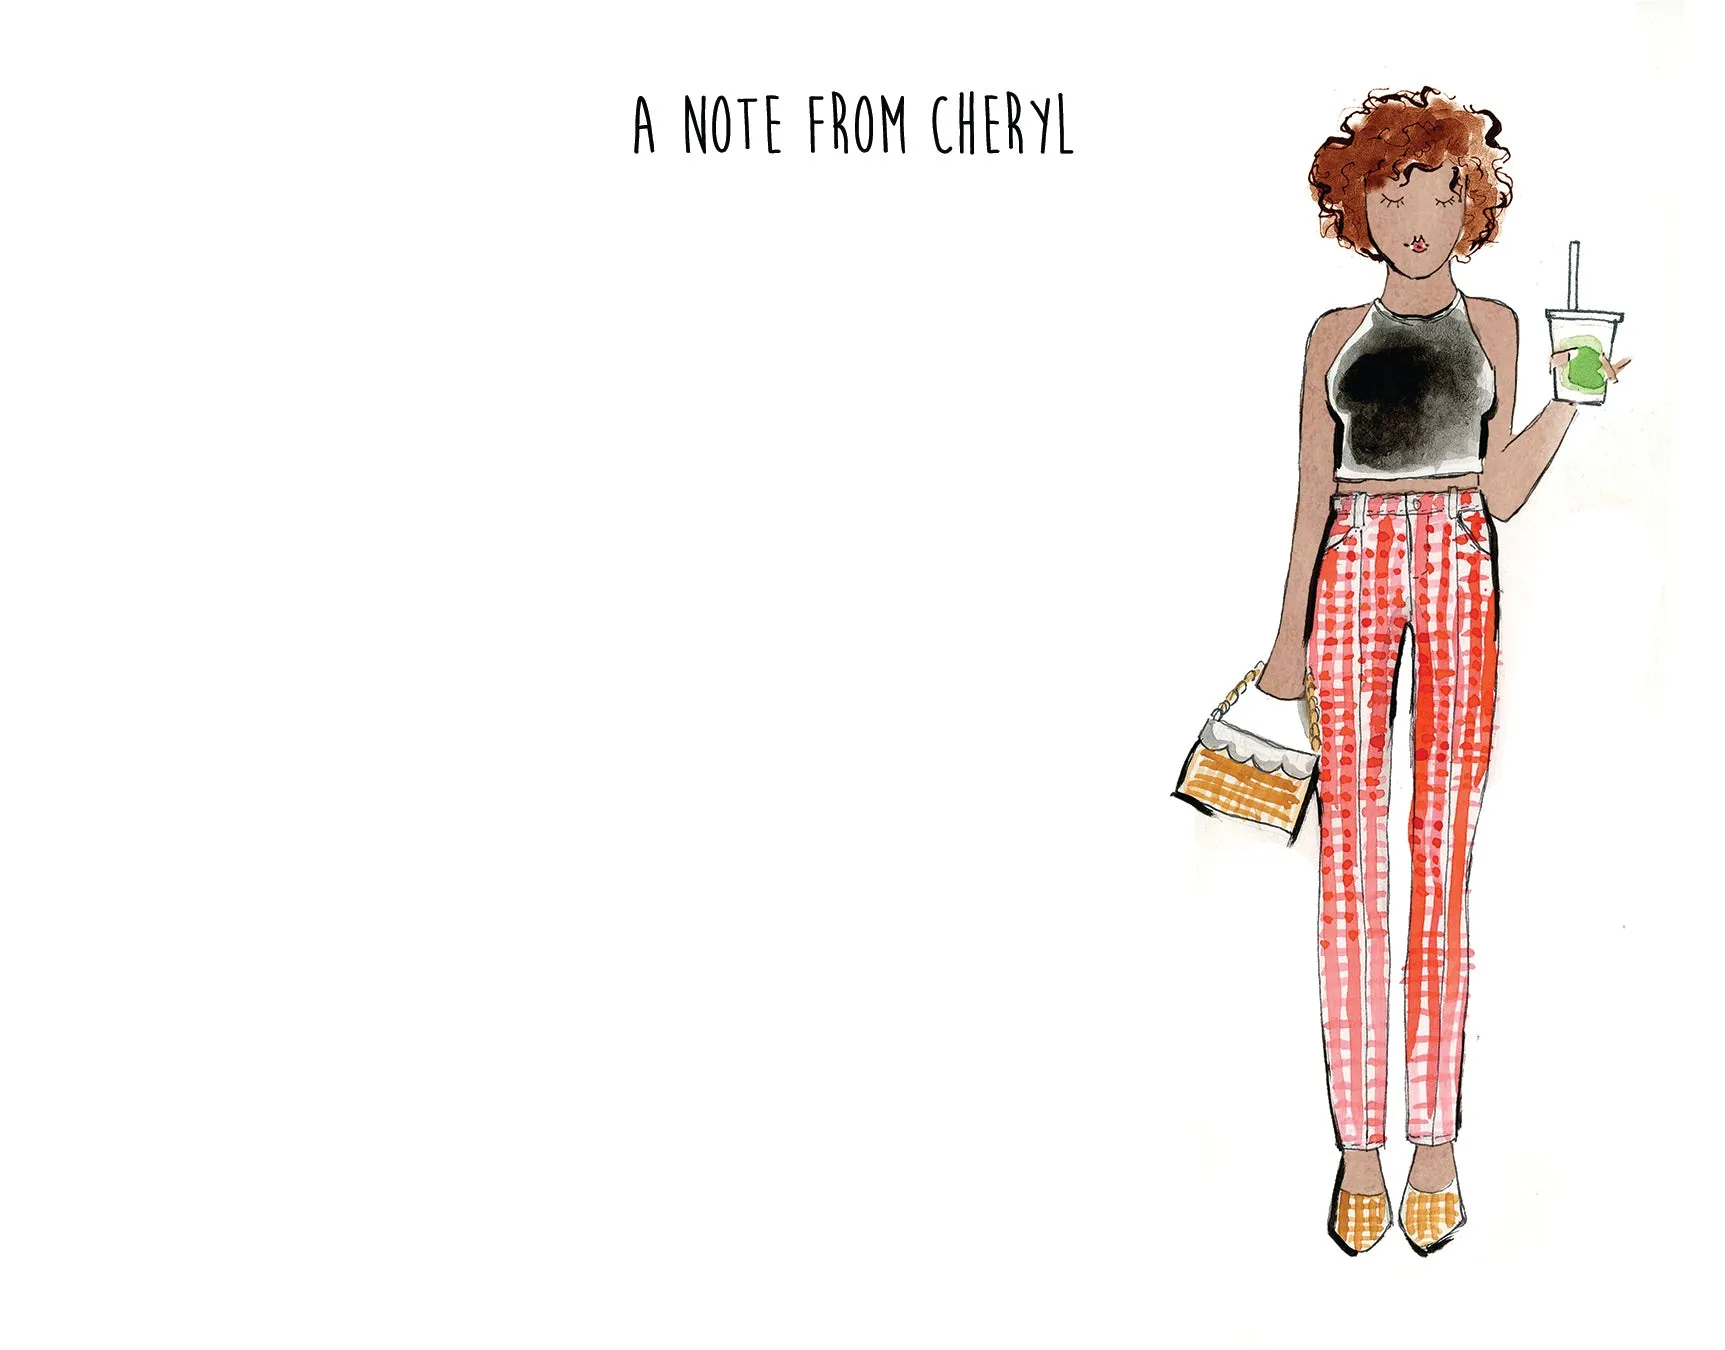 A NOTE FROM CHERYL